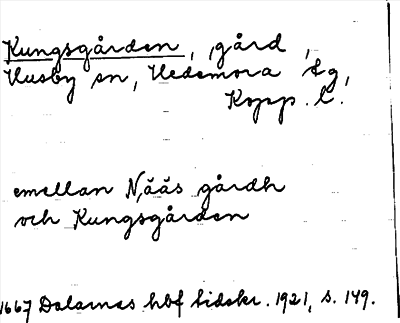 Kungsgården, gård,
Husby sn, Hedemora tg,
Kopp. l.
emellan Nääs gårdh
och Kungsgården
1667 Dalarnas hbf tidskr. 1921, s. 149.